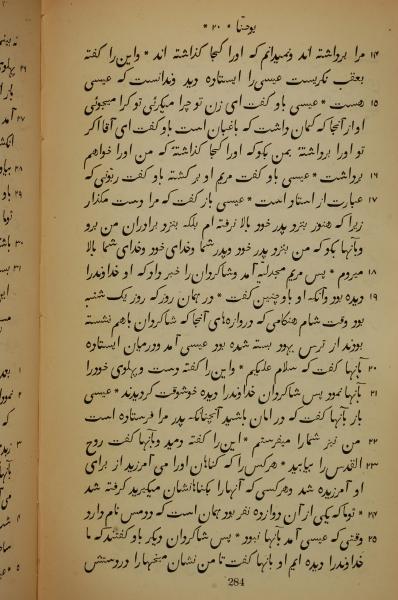 یوحنّا * ۲۰ *
مرا برداشته اند ونمیدانم که اورا کجا گذاشته اند * واین را گفته ۱۴
بعقب نگریست عیسی را ایستاده دید وندانست که عیسی
هست * عیسی باو گفت ای زن تو چرا میگرئی تو کرا میجوئی ۱۵
او از آنجا که گمان داشت که باغبان است باو گفت ای آقا اگر
تو اورا برداشتۀ بمن بگو که اورا کجا گذاشتۀ که من اورا خواهم
برداشت * عیسی باو گفت مریم او برگشته باو گفت ربّونی که ۱۶
عبارت از استاد است * عیسی باز گفت که مرا دست مگذار ۱۷
زیرا که هنوز بنزد پدر خود بالا نرفته ام بلکه بنزد برادران من برو
وبآنها بگو که من بنزد پدر خود وپدر شما وخدای خود وخدای شما بالا
میروم * پس مریم مجدلیه آمد وشاگردان را خبر داد که او خداوندرا ۱۸
دیده بود وآنکه او باو چنین گفت * در همان روز که روز یک شنبه ۱۹
بود وقت شام هنگامی که دروازهای آنجا که شاگردان باهم نشسته
بودند از ترس یهود بسته شده بود عیسی آمد ودرمیان ایستاده
بآنها گفت که سلام علیکم * این را گفته دست وپهلوی خودرا ۲۰
بآنها نمود پس شاگردان خداوندرا دیده خوشوقت گردیدند * عیسی ۲۱
باز بآنها گفت که در امان باشید آنچنانکه پدر مرا فرستاده است
من نیز شمارا میفرستم * این را گفته دمید وبآنها گفت روح ۲۲
القدس را بیابید * هرکس را که گناهان اورا می آمرزید از برای ۲۳
او آمرزیده شد وهرکسی که آنهارا بگناهانشان میگیرید گرفته شد
* توما که یکی از آن دوازده نفر بود همان است که دومس نام دارد ۲۴
وقتی که عیسی آمد بآنها نبود * پس شاگردان دیگر باو گفتند که ما ۲۵
خداوندرا دیده ایم او بآنها گفت تا من نشان میخهارا در دستش
284